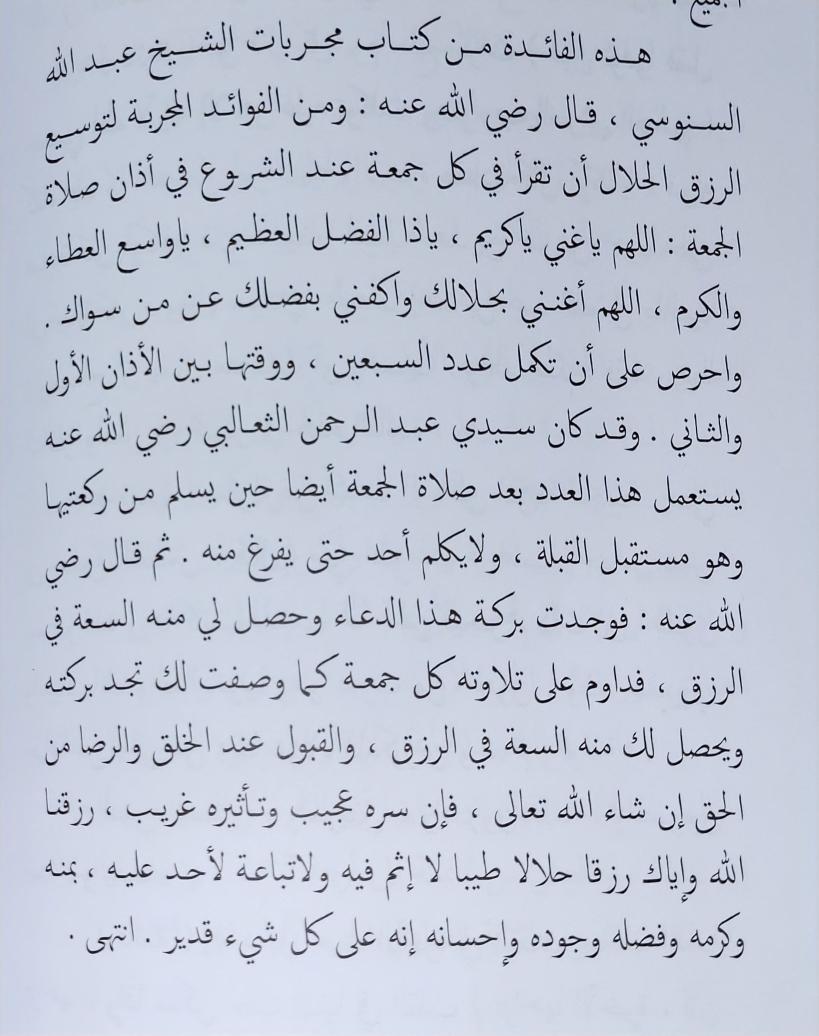 هذه الفائدة من كتاب مجربات الشيخ عبد الله
السنوسي ، قال رضي الله عنه : ومن الفوائد المجربة لتوسيع
الرزق الحلال أن تقرأ في كل جمعة عند الشروع في أذان صلاة
الجمعة : اللهم ياغني ياكريم ، ياذا الفضل العظيم ، ياواسع العطاء
والكرم ، اللهم أغنني بحلالك واكفني بفضلك عن من سواك .
واحرص على أن تكمل عدد السبعين ، ووقتها بين الأذان الأول
والثاني . وقد كان سيدي عبد الرحمن الثعالبي رضي الله عنه
يستعمل هذا العدد بعد صلاة الجمعة أيضا حين يسلم من ركعتيها
وهو مستقبل القبلة ، ولايكلم أحد حتى يفرغ منه . ثم قال رضي
الله عنه : فوجدت بركة هذا الدعاء وحصل لي منه السعة في
الرزق ، فداوم على تلاوته كل جمعة كما وصفت لك تجد بركته
ويحصل لك منه السعة في الرزق ، والقبول عند الخلق والرضا من
الحق إن شاء الله تعالى ، فإن سره عجيب وتأثيره غريب ، رزقنا
الله وإياك رزقا حلالا طيبا لا إثم فيه ولاتباعة لأحد عليه ، بمنه
وكرمه وفضله وجوده وإحسانه إنه على كل شيء قدير . انتهى .